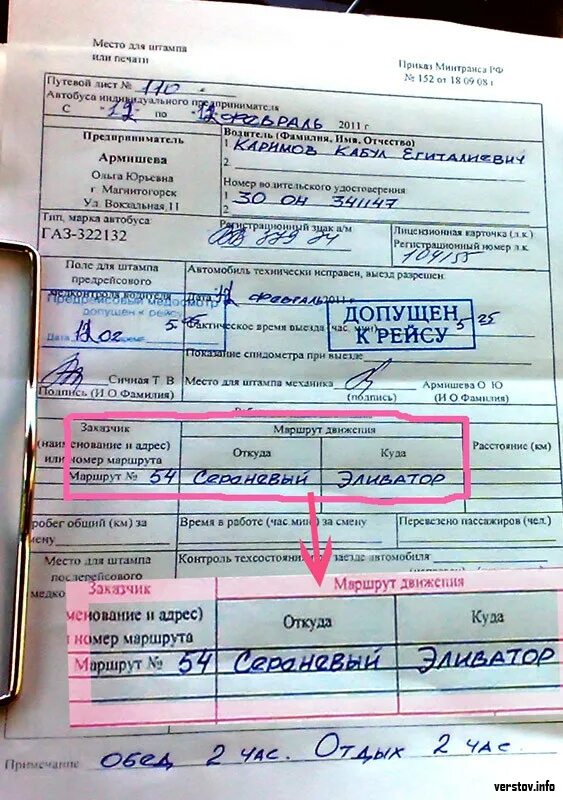 Место для штампа
или печати
Приказ Минтранса РФ
№ 152 от 18 09 08 г
Путевой лист № 110
Автобуса индивидуального предпринимателя
С "12" по "12" февраль 2011 г
Предприниматель
Армишева
Ольга Юрьевна
г Магнитогорск
Ул. Вокзальная 11
Водитель (Фамилия, Имя, Отчество)
1 Каримов Кабул Егиталиевич
2
Номер водительского удостоверения
1 30 ОН 341147
2
Тип, марка автобуса
ГАЗ-322132
Регистрационный знак а/м
879
Лицензионная карточка (л.к.)
Регистрационный номер л.к
104155
Поле для штампа
предрейсового
медконтроля водителя
Предрейсовый медосмотр
допущен к рейсу
Дата 12 02 время 5-
Автомобиль технически исправен, выезд разрешен
Дата 12 февраль 2011 г
Фактическое время выезда (час. мин) 5-25
ДОПУЩЕН
К РЕЙСУ
Показание спидометра при выезде
Сичная Т В
Подпись (И О Фамилия)
Место для штампа механика
(подпись)
Армишева О Ю
(И.О Фамилия)
Заказчик
(наименование и адрес)
или номер маршрута
Маршрут движения
Откуда
Куда
Расстояние (км)
Маршрут № 54 Сераневый Эливатор
робег общий (км) за
мену
Время в работе (час.мин) за смену
Перевезено пассажиров (чел.)
Место для штампа
послерейсового
медко
Контроль техсостояни заезде автомобиля
Заказчик
менование и адрес)
номер маршрута
Маршрут движения
Откуда
Куда
Маршрут № 54 Сераневый Эливатор
Примечание обед 2 час. Отдых 2 час.
verstov.info